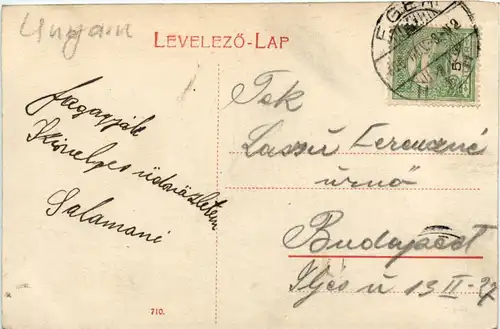 Ungarn
LEVELEZŐ-LAP
EGER
5
fogadják
Szívélyes üdvözletem
Salamoné
Tek
Lassú Ferenczné
úrnő
Budapest
Illés u 13 II-27
710.